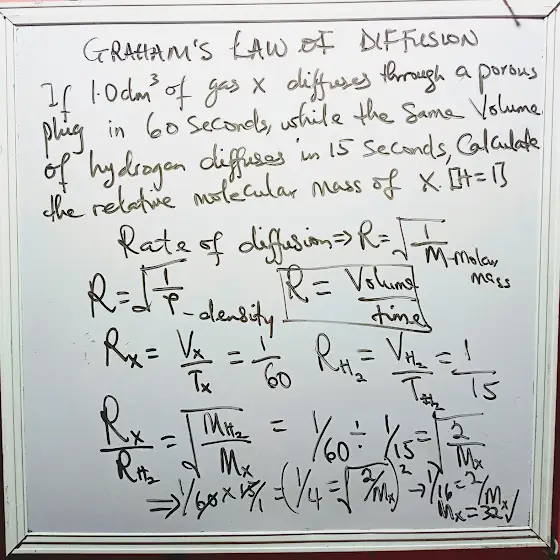 GRAHAM'S LAW OF DIFFUSION
If 1.0dm³ of gas X diffuses through a porous
plug in 60 Seconds, while the Same Volume
of hydrogen diffuses in 15 Seconds, Calculate
the relative molecular mass of X. [H=1]
Rate of diffusion ⇒ R = √(1/M) - molar mass
R = √(1/ρ) - density R = Volume/time
Rx = Vx/Tx = 1/60 RH₂ = VH₂/TH₂ = 1/15
Rx/RH₂ = √(MH₂/Mx) = 1/60 ÷ 1/15 = √(2/Mx)
⇒ 1/60 × 15/1 = (1/4 = √(2/Mx))² → 1/16 = 2/Mx
Mx = 32√